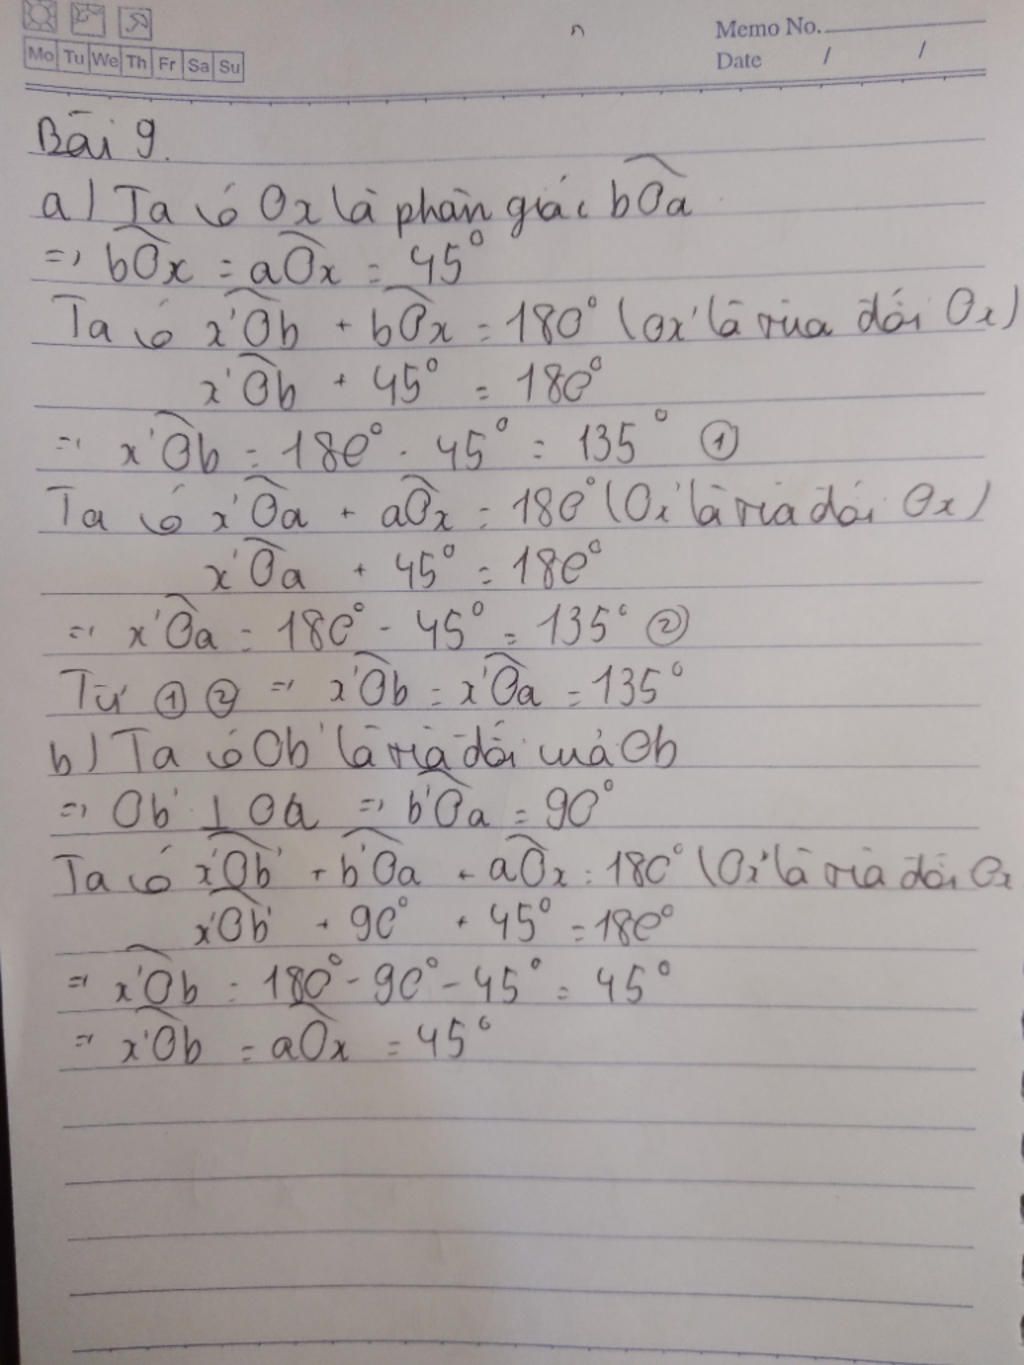 Memo No.
Mo Tu We Th Fr Sa Su
Date / /
Bài 9.
a) Ta có Ox là phân giác bOa
=> bOx = aOx = 45°
Ta có x'Ob + bOx = 180° (Ox' là của đối Ox)
x'Ob + 45° = 180°
=> x'Ob = 180° - 45° = 135° ①
Ta có x'Oa + aOx = 180° (Ox' là tia đối Ox)
x'Oa + 45° = 180°
=> x'Oa = 180° - 45° = 135° ②
Từ ① ② => x'Ob = x'Oa = 135°
b) Ta có Ob' là tia đối của Ob
=> Ob' ⊥ Oa => b'Oa = 90°
Ta có x'Ob' + b'Oa + aOx = 180° (Ox' là tia đối Ox
x'Ob' + 90° + 45° = 180°
=> x'Ob = 180° - 90° - 45° = 45°
=> x'Ob = aOx = 45°